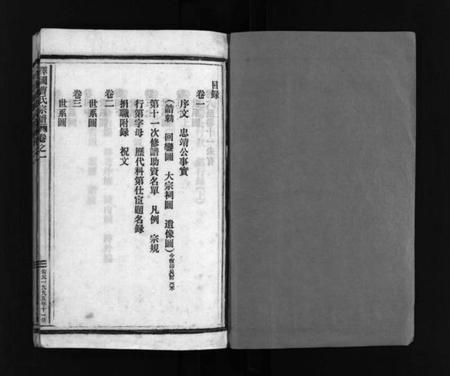 目錄
卷一
序文 忠靖公事實
(譜勅 回鑾圖 大宗祠圖 遺像圖)
第十一次修譜助資名單 凡例 宗規
行第字母 歷代科第仕宦題名錄
捐職附錄 祝文
卷二
世系圖
卷三
世系圖
氏宗譜 卷之一
公元一九九五年十一月